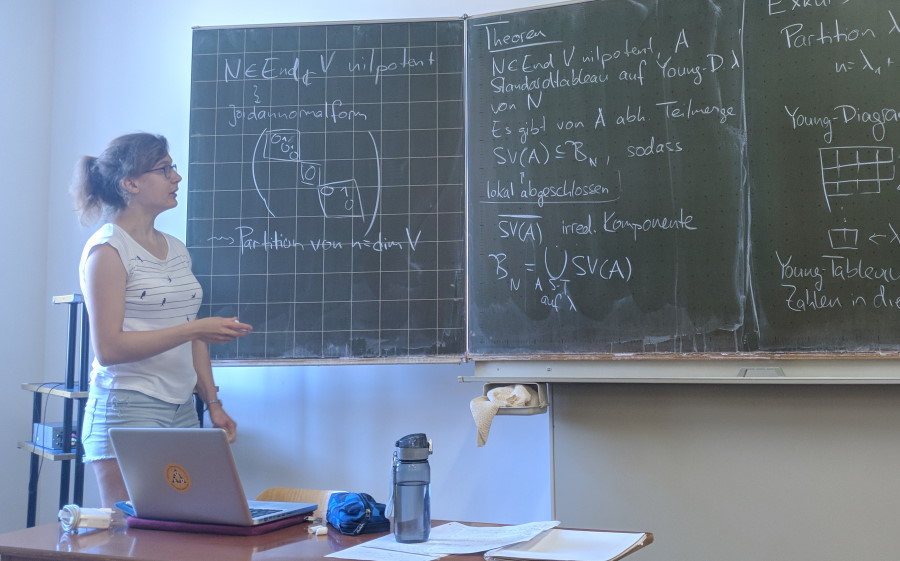 N ∈ End_ℂ V nilpotent
Jordannormalform
0 1
0 1
0
0
0 1
0
⇝ Partition von n = dim V
Theorem
N ∈ End V nilpotent, A
Standardtableau auf Young-D λ
von N
Es gibt von A abh. Teilmenge
SV(A) ⊆ B_N, sodass
lokal abgeschlossen
SV(A) irred. Komponente
B_N = ⋃ SV(A)
A S-T
auf λ
Exkurs
Partition λ
n = λ₁ +
Young-Diagra
← λ
Young-Tableau
Zahlen in die